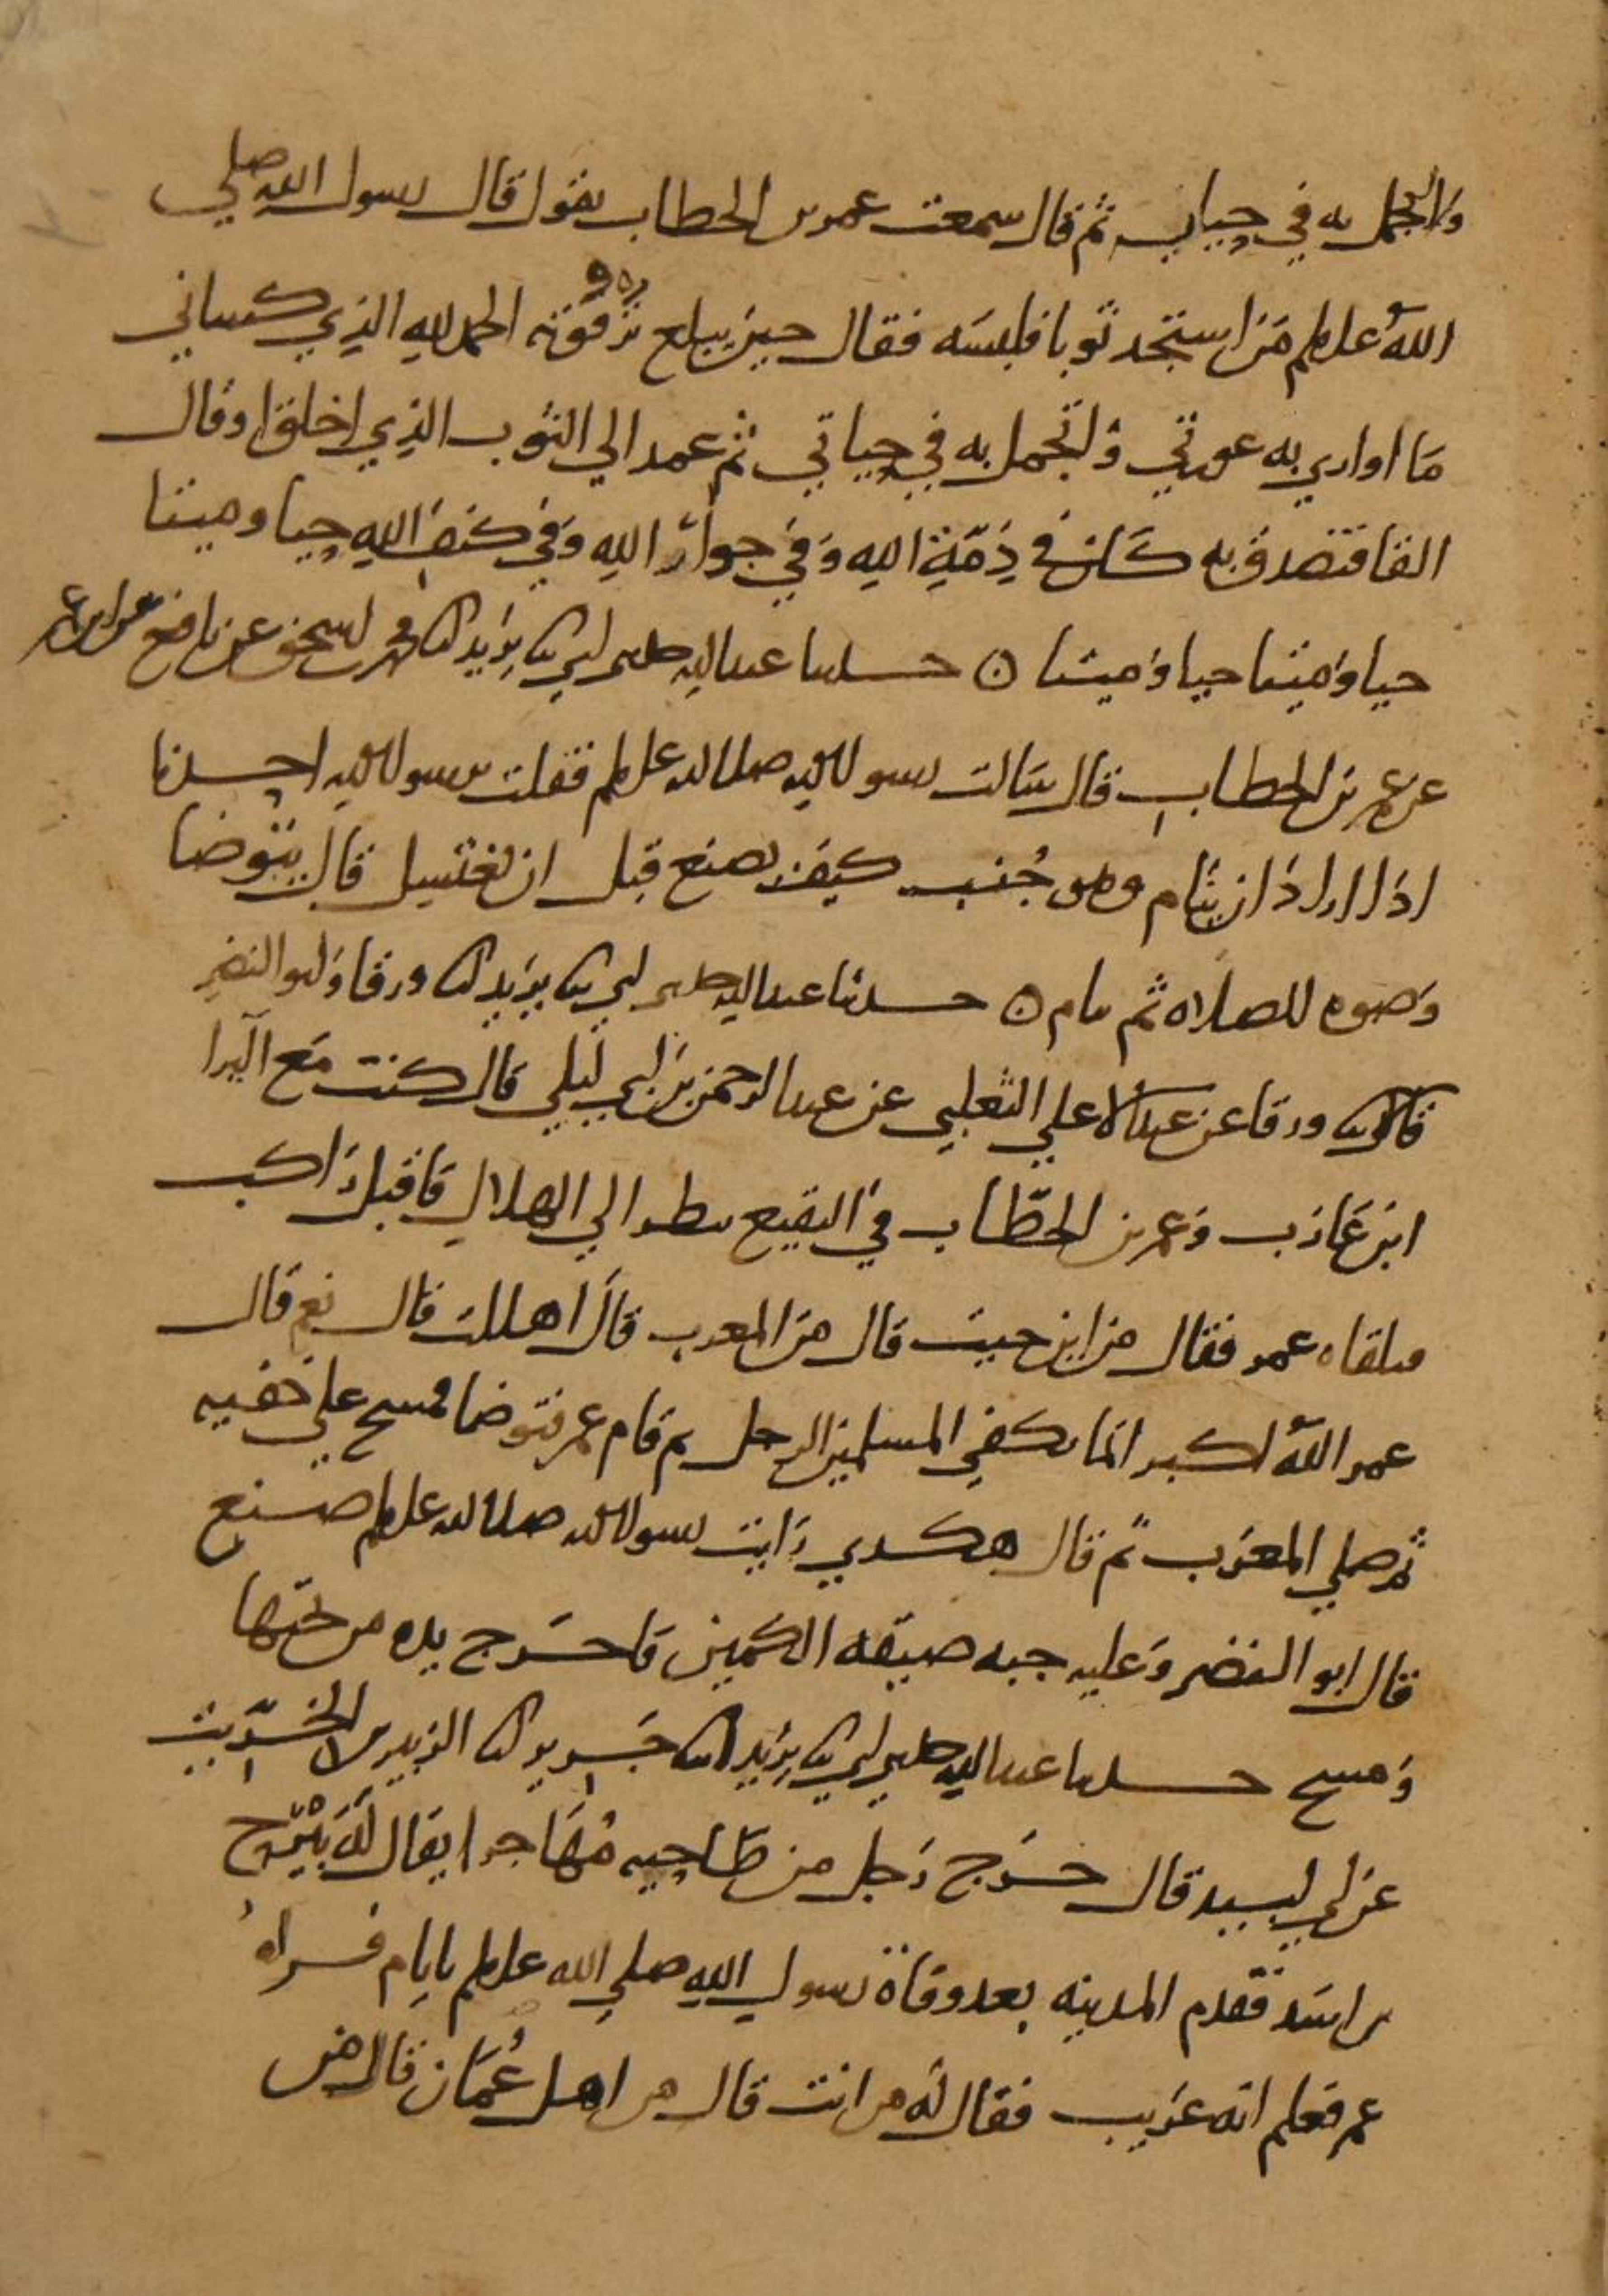 واتجمل به في حياتي ثم قال سمعت عمر بن الخطاب يقول قال رسول الله صلى
الله علىلم من استجد ثوبا فلبسه فقال حين يبلغ ترقوته الحمد لله الذي كساني
ما اواري به عورتي واتجمل به في حياتي ثم عمد الي الثوب الذي اخلق او قال
القا فتصدق به كان في ذمة الله وفي جوار الله وفي كنف الله حيا وميتا
حيا وميتا حيا وميتا ٥ حدثنا عبد الله حدثني ابي ثنا يزيد انا محمد بن اسحق عن نافع عن ابن عمر
عن عمر بن الخطاب قال سالت رسول الله صلى الله علىلم فقلت يرسول الله احدنا
اذا اراد ان ينام وهو جنب كيف يصنع قبل ان يغتسل قال يتوضا
وضوه للصلاه ثم ينام ٥ حدثنا عبد الله حدثني ابي ثنا يزيد انا ورقا وابو النضر
قالا ثنا ورقا عن عبد الاعلي الثعلبي عن عبد الرحمن بن ابي ليلي قال كنت مع البرا
ابن عازب وعمر بن الخطاب في البقيع ينظر الي الهلال فاقبل راكب
فتلقاه عمر فقال من اين جيت قال من المغرب قال اهللت قال نعم قال
عمر الله اكبر انما يكفي المسلمين الرجل ثم قام عمر فتوضا فمسح علي خفيه
ثم صلي المغرب ثم قال هكدي رايت رسول الله صلى الله علىلم صنع
قال ابو النضر وعليه جبه ضيقه الكمين فاخرج يده من تحتها
ومسح حدثنا عبد الله حدثني ابي ثنا يزيد انا جرير انا الزبير بن الخريت
عن ابي لبيد قال خرج رجل من طاحيه مهاجرا يقال له بيرح
بن اسد فقدم المدينه بعد وفاة رسول الله صلي الله علىلم بايام فراه
عمر فعلم انه غريب فقال له من انت قال من اهل عمان قال من